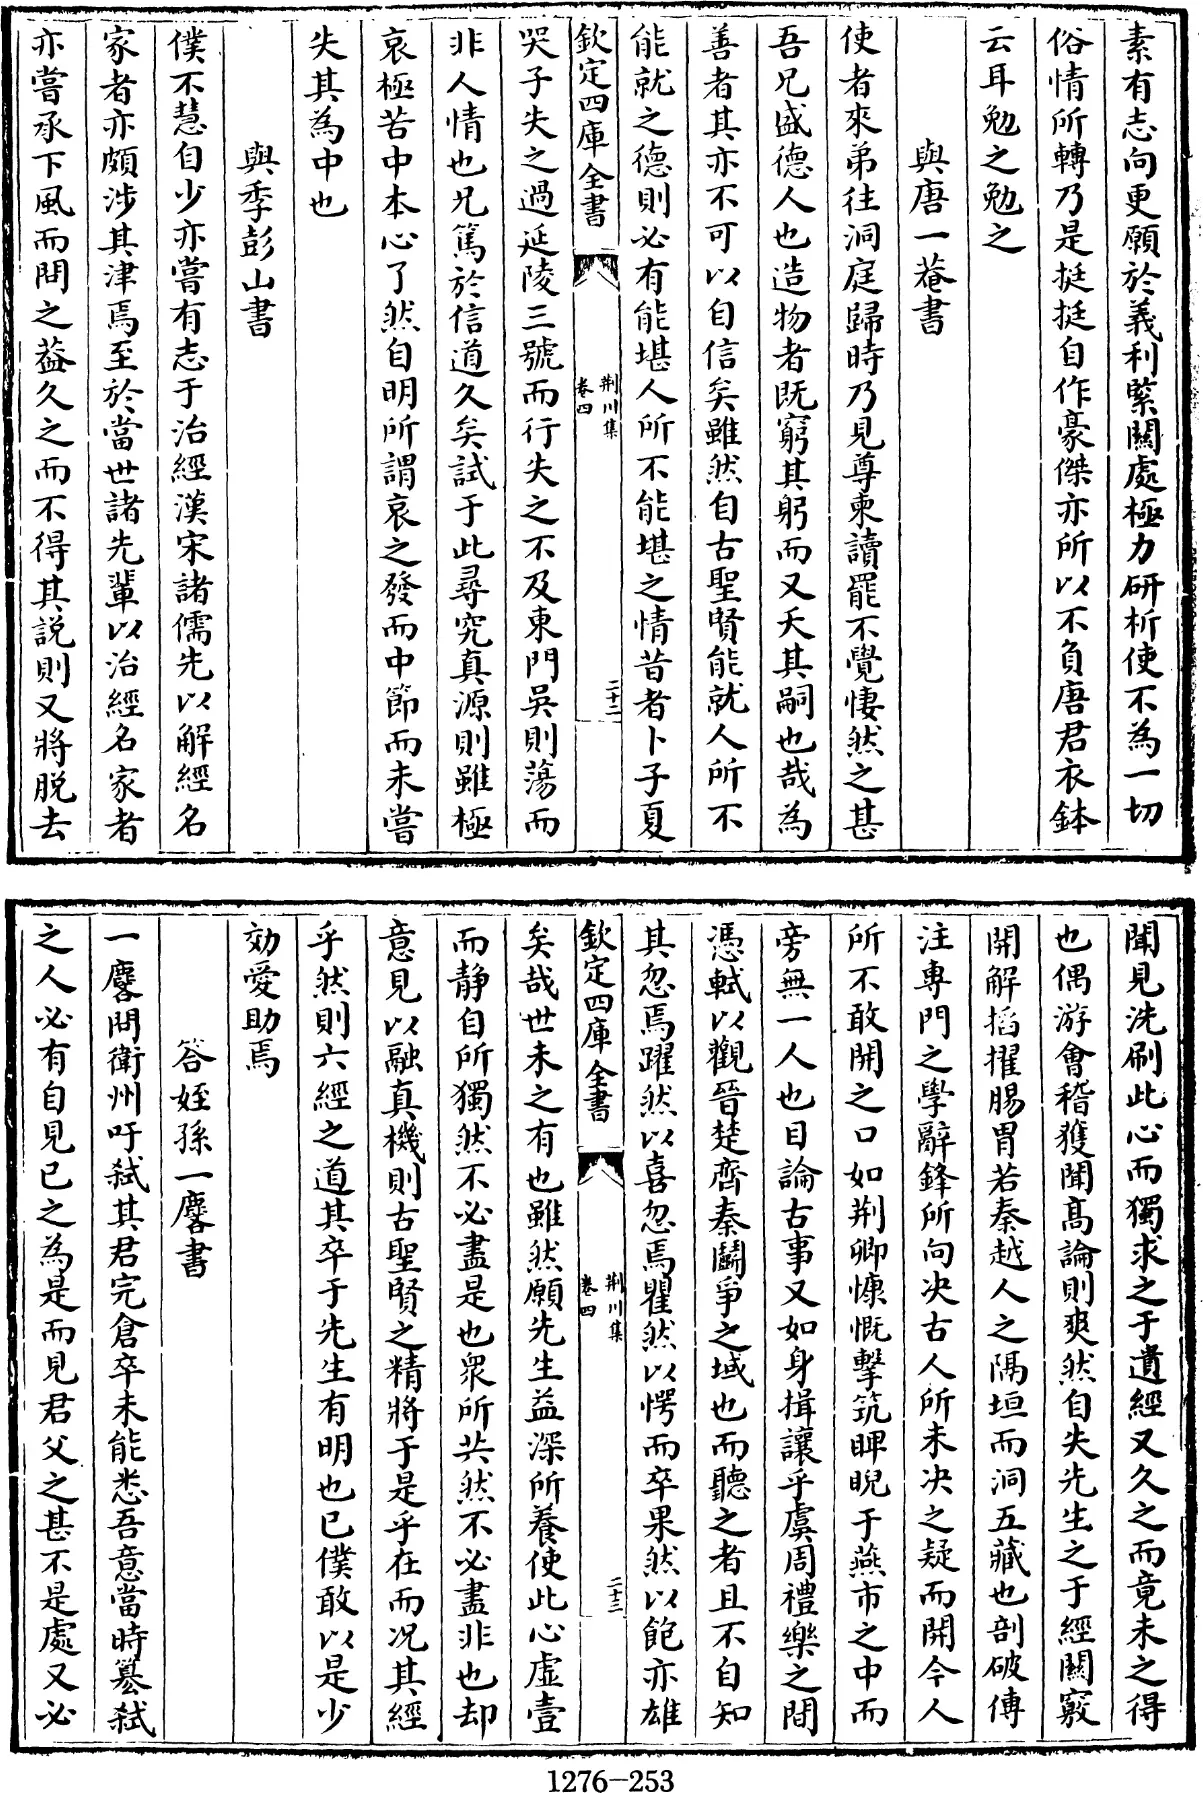 素有志向更願於義利緊關處極力研析使不為一切
俗情所轉乃是挺挺自作豪傑亦所以不負唐君衣鉢
云耳勉之勉之
與唐一菴書
使者來弟往洞庭歸時乃見尊柬讀罷不覺悽然之甚
吾兄盛德人也造物者既窮其躬而又夭其嗣也哉為
善者其亦不可以自信矣雖然自古聖賢能就人所不
能就之德則必有能堪人所不能堪之情昔者卜子夏
欽定四庫全書
荆川集
卷四
二十二
哭子失之過延陵三號而行失之不及東門吳則蕩而
非人情也兄篤於信道久矣試于此尋究真源則雖極
哀極苦中本心了然自明所謂哀之發而中節而未嘗
失其為中也
與季彭山書
僕不慧自少亦嘗有志于治經漢宋諸儒先以解經名
家者亦頗涉其津焉至於當世諸先輩以治經名家者
亦嘗承下風而問之葢久之而不得其説則又將脱去
聞見洗刷此心而獨求之于遺經又久之而竟未之得
也偶游會稽獲聞髙論則爽然自失先生之于經關竅
開解搯擢腸胃若秦越人之隔垣而洞五藏也剖破傳
注専門之學辭鋒所向决古人所未决之疑而開今人
所不敢開之口如荆卿慷慨擊筑睥睨于燕市之中而
旁無一人也目論古事又如身揖讓乎虞周禮樂之間
憑軾以觀晉楚齊秦鬬爭之域也而聽之者且不自知
其忽焉躍然以喜忽焉瞿然以愕而卒果然以飽亦雄
欽定四庫全書
荆川集
卷四
二十三
矣哉世未之有也雖然願先生益深所養使此心虛壹
而靜自所獨然不必盡是也衆所共然不必盡非也却
意見以融真機則古聖賢之精將于是乎在而况其經
乎然則六經之道其卒于先生有明也已僕敢以是少
効愛助焉
答姪孫一麐書
一麐問衛州吁弑其君完倉卒未能悉吾意當時簒弑
之人必有自見已之為是而見君父之甚不是處又必
1276-253